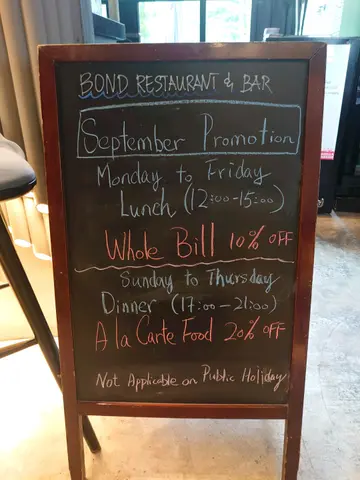 BOND RESTAURANT & BAR
September Promotion
Monday to Friday
Lunch (12:00-15:00)
Whole Bill 10% OFF
Sunday to Thursday
Dinner (17:00-21:00)
A la Carte Food 20% OFF
Not Applicable on Public Holiday